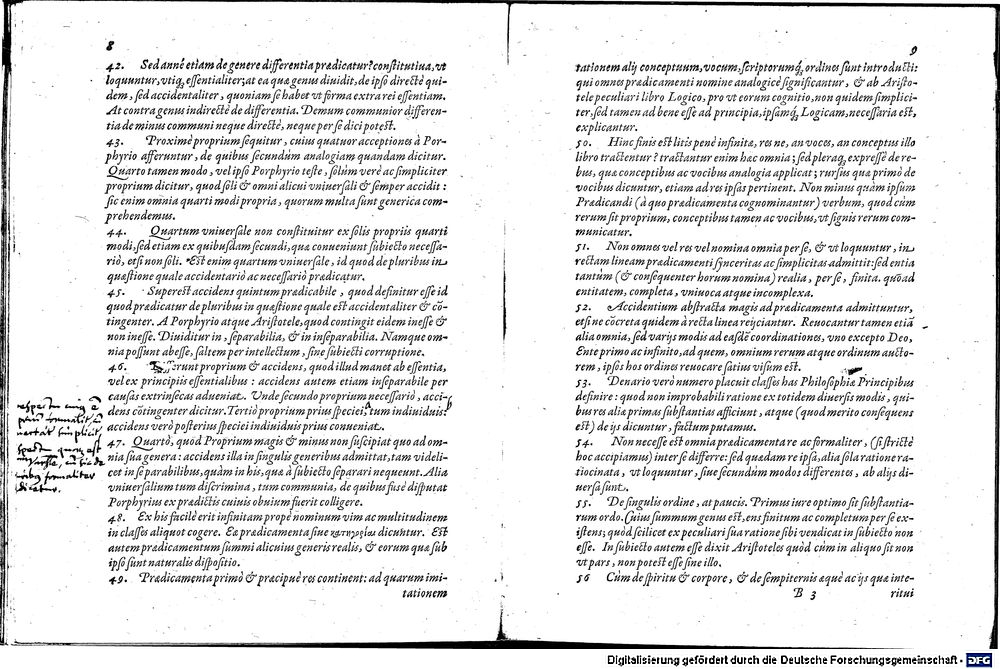 8
42. Sed annè etiam de genere differentia prædicatur? constitutiua, vt
loquuntur, vtiq; essentialiter; at ea quæ genus diuidit, de ipso directè qui-
dem, sed accidentaliter, quoniam se habet vt forma extra rei essentiam.
At contra genus indirectè de differentia. Demum communior differen-
tia de minus communi neque directè, neque per se dici potest.
43. Proximè proprium sequitur, cuius quatuor acceptiones à Por-
phyrio afferuntur, de quibus secundùm analogiam quandam dicitur.
Quarto tamen modo, vel ipso Porphyrio teste, solùm verè ac simpliciter
proprium dicitur, quod soli & omni alicui vniuersali & semper accidit:
sic enim omnia quarti modi propria, quorum multa sunt generica com-
prehendemus.
44. Quartum vniuersale non constituitur ex solis propriis quarti
modi, sed etiam ex quibusdam secundi, quæ conueniunt subiecto necessa-
riò, etsi non soli. Est enim quartum vniuersale, id quod de pluribus in
quæstione quale accidentariò ac necessariò prædicatur.
45. Superest accidens quintum prædicabile, quod definitur esse id
quod prædicatur de pluribus in quæstione quale est accidentaliter & cō-
tingenter. A Porphyrio atque Aristotele, quod contingit eidem inesse &
non inesse. Diuiditur in, separabilia, & in inseparabilia. Namque om-
nia possunt abesse, saltem per intellectum, sine subiecti corruptione.
46. Differunt proprium & accidens, quod illud manet ab essentia,
vel ex principiis essentialibus: accidens autem etiam inseparabile per
causas extrinsecas adueniat. Vnde secundo proprium necessariò, acci-
dens cōtingenter dicitur. Tertiò proprium prius speciei, tum indiuiduis:
accidens verò posterius speciei indiuiduis prius conueniat.
47. Quartò, quòd Proprium magis & minus non suscipiat quo ad om-
nia sua genera: accidens illa in singulis generibus admittat, tam videli-
cet in separabilibus, quàm in his, quæ à subiecto separari nequeunt. Alia
vniuersalium tum discrimina, tum communia, de quibus fusè disputat
Porphyrius ex prædictis cuiuis obuium fuerit colligere.
48. Ex his facilè erit infinitam propè nominum vim ac multitudinem
in classes aliquot cogere. Eæ prædicamenta siue κατηγορίαι dicuntur. Est
autem prædicamentum summi alicuius generis realis, & eorum quæ sub
ipso sunt naturalis dispositio.
49. Prædicamenta primò & præcipuè res continent: ad quarum imi-
tationem
9
tationem alij conceptuum, vocum, scriptorumq́; ordines sunt introducti:
qui omnes prædicamenti nomine analogicè significantur, & ab Aristo-
tele peculiari libro Logico, pro vt eorum cognitio, non quidem simplici-
ter, sed tamen ad bene esse ad principia, ipsamq́; Logicam, necessaria est,
explicantur.
50. Hinc finis est litis penè infinitæ, res ne, an voces, an conceptus illo
libro tractentur? tractantur enim hæc omnia; sed pleraq́; expressè de re-
bus, quæ conceptibus ac vocibus analogia applicat; rursus quæ primò de
vocibus dicuntur, etiam ad res ipsas pertinent. Non minus quàm ipsum
Prædicandi (à quo prædicamenta cognominantur) verbum, quod cùm
rerum sit proprium, conceptibus tamen ac vocibus, vt signis rerum com-
municatur.
51. Non omnes vel res vel nomina omnia per se, & vt loquuntur, in
rectam lineam prædicamenti synceritas ac simplicitas admittit: sed entia
tantùm (& consequenter horum nomina) realia, per se, finita. quo ad
entitatem, completa, vniuoca atque incomplexa.
52. Accidentium abstracta magis ad prædicamenta admittuntur,
etsi ne cōcreta quidem à recta linea reijciantur. Reuocantur tamen etiā
alia omnia, sed varijs modis ad easdē coordinationes, vno excepto Deo,
Ente primo ac infinito, ad quem, omnium rerum atque ordinum aucto-
rem, ipsos hos ordines reuocare satius visum est.
53. Denario verò numero placuit classes has Philosophiæ Principibus
definire: quod non improbabili ratione ex totidem diuersis modis, qui-
bus res aliæ primas substantias afficiunt, atque (quod merito consequens
est) de ijs dicuntur, factum putamus.
54. Non necesse est omnia prædicamenta re ac formaliter, (si strictè
hoc accipiamus) inter se differre: sed quædam re ipsa, alia sola ratione ra-
tiocinata, vt loquuntur, siue secundùm modos differentes, ab alijs di-
uersa sunt.
55. De singulis ordine, at paucis. Primus iure optimo sit substantia-
rum ordo. Cuius summum genus est, ens finitum ac completum per se ex-
istens; quòd scilicet ex peculiari sua ratione sibi vendicat in subiecto non
esse. In subiecto autem esse dixit Aristoteles quòd cùm in aliquo sit non
vt pars, non potest esse sine illo.
56 Cùm de spiritu & corpore, & de sempiternis æquè ac ijs quæ inte-
B 3 ritui
Digitalisierung gefördert durch die Deutsche Forschungsgemeinschaft - DFG